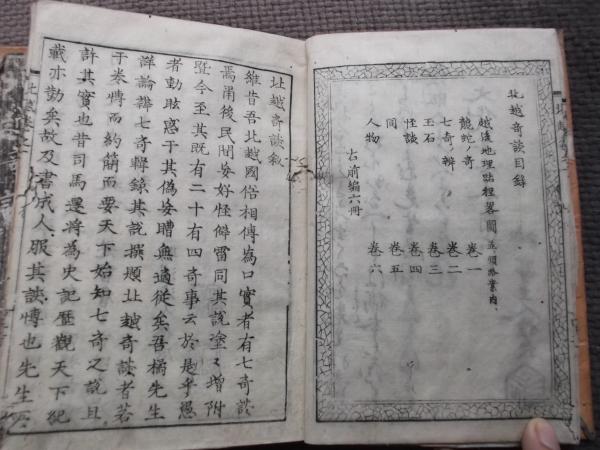 北越奇談目録
越後地理畧圖
龍蛇ノ奇 巻一
七奇ノ辨 巻二
玉石 巻三
怪談 巻四
同 巻五
人物 巻六
右前編六冊
北越奇談敘
維昔吾北越國俗相傳為口實者有七奇談
焉甫後民間妄好怪僻雷同其說塗〻增附
曁今至其既有二十有四奇事云於是乎愚
者動眩惑于其偽妄瞻無適從矣吾橘先生
詳論辨七奇輯錄其說撰題北越奇談者若
干米博而約簡而要天下始知七奇之說且
許其實也昔司馬遷將為史記歷觀天下紀
載亦勤矣故及書成人服其談博也先生